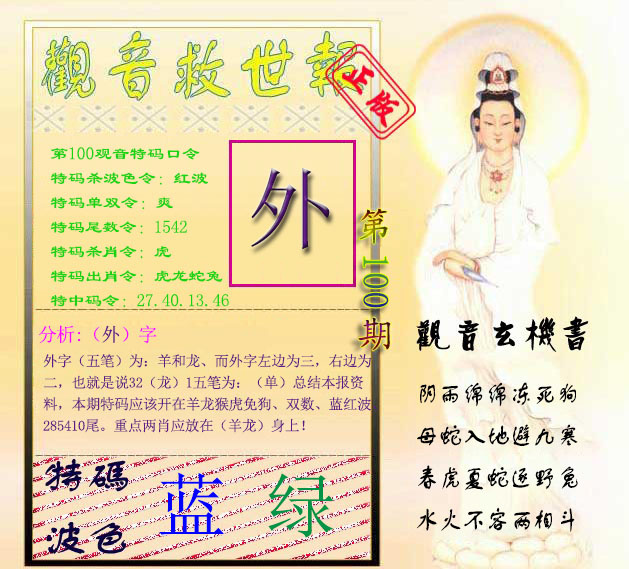 觀音救世報
正版
第100观音特码口令
特码杀波色令：红波
特码单双令：爽
特码尾数令：1542
特码杀肖令：虎
特码出肖令：虎龙蛇兔
特中码令：27.40.13.46
外
第100期
分析:（外）字
外字（五笔）为：羊和龙、而外字左边为三，右边为
二，也就是说32（龙）1五笔为：（单）总结本报资
料，本期特码应该开在羊龙猴虎兔狗、双数、蓝红波
285410尾。重点两肖应放在（羊龙）身上！
特碼
波色
蓝 绿
觀音玄機書
阴雨绵绵冻死狗
母蛇入地避九寒
春虎夏蛇逐野兔
水火不容两相斗